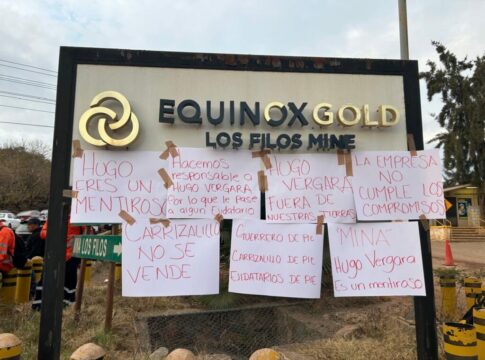 EQUINOXGOLD
LOS FILOS MINE
HUGO
ERES UN
MENTIROSO
Hacemos
responsable a
HUGO VERGARA
Por lo que le pase
a algun Ejidatario
HUGO
VERGARA
FUERA DE
NUESTRAS TIERRAS
LA EMPRESA
NO
CUMPLE LOS
COMPROMISOS
LOS FILOS
CARRIZALILLO
NO SE
VENDE
GUERRERO DE PIE
CARRIZALILLO DE PIE
EJIDATARIOS DE PIE
"MINA"
Hugo Vergara
Es un mentiroso